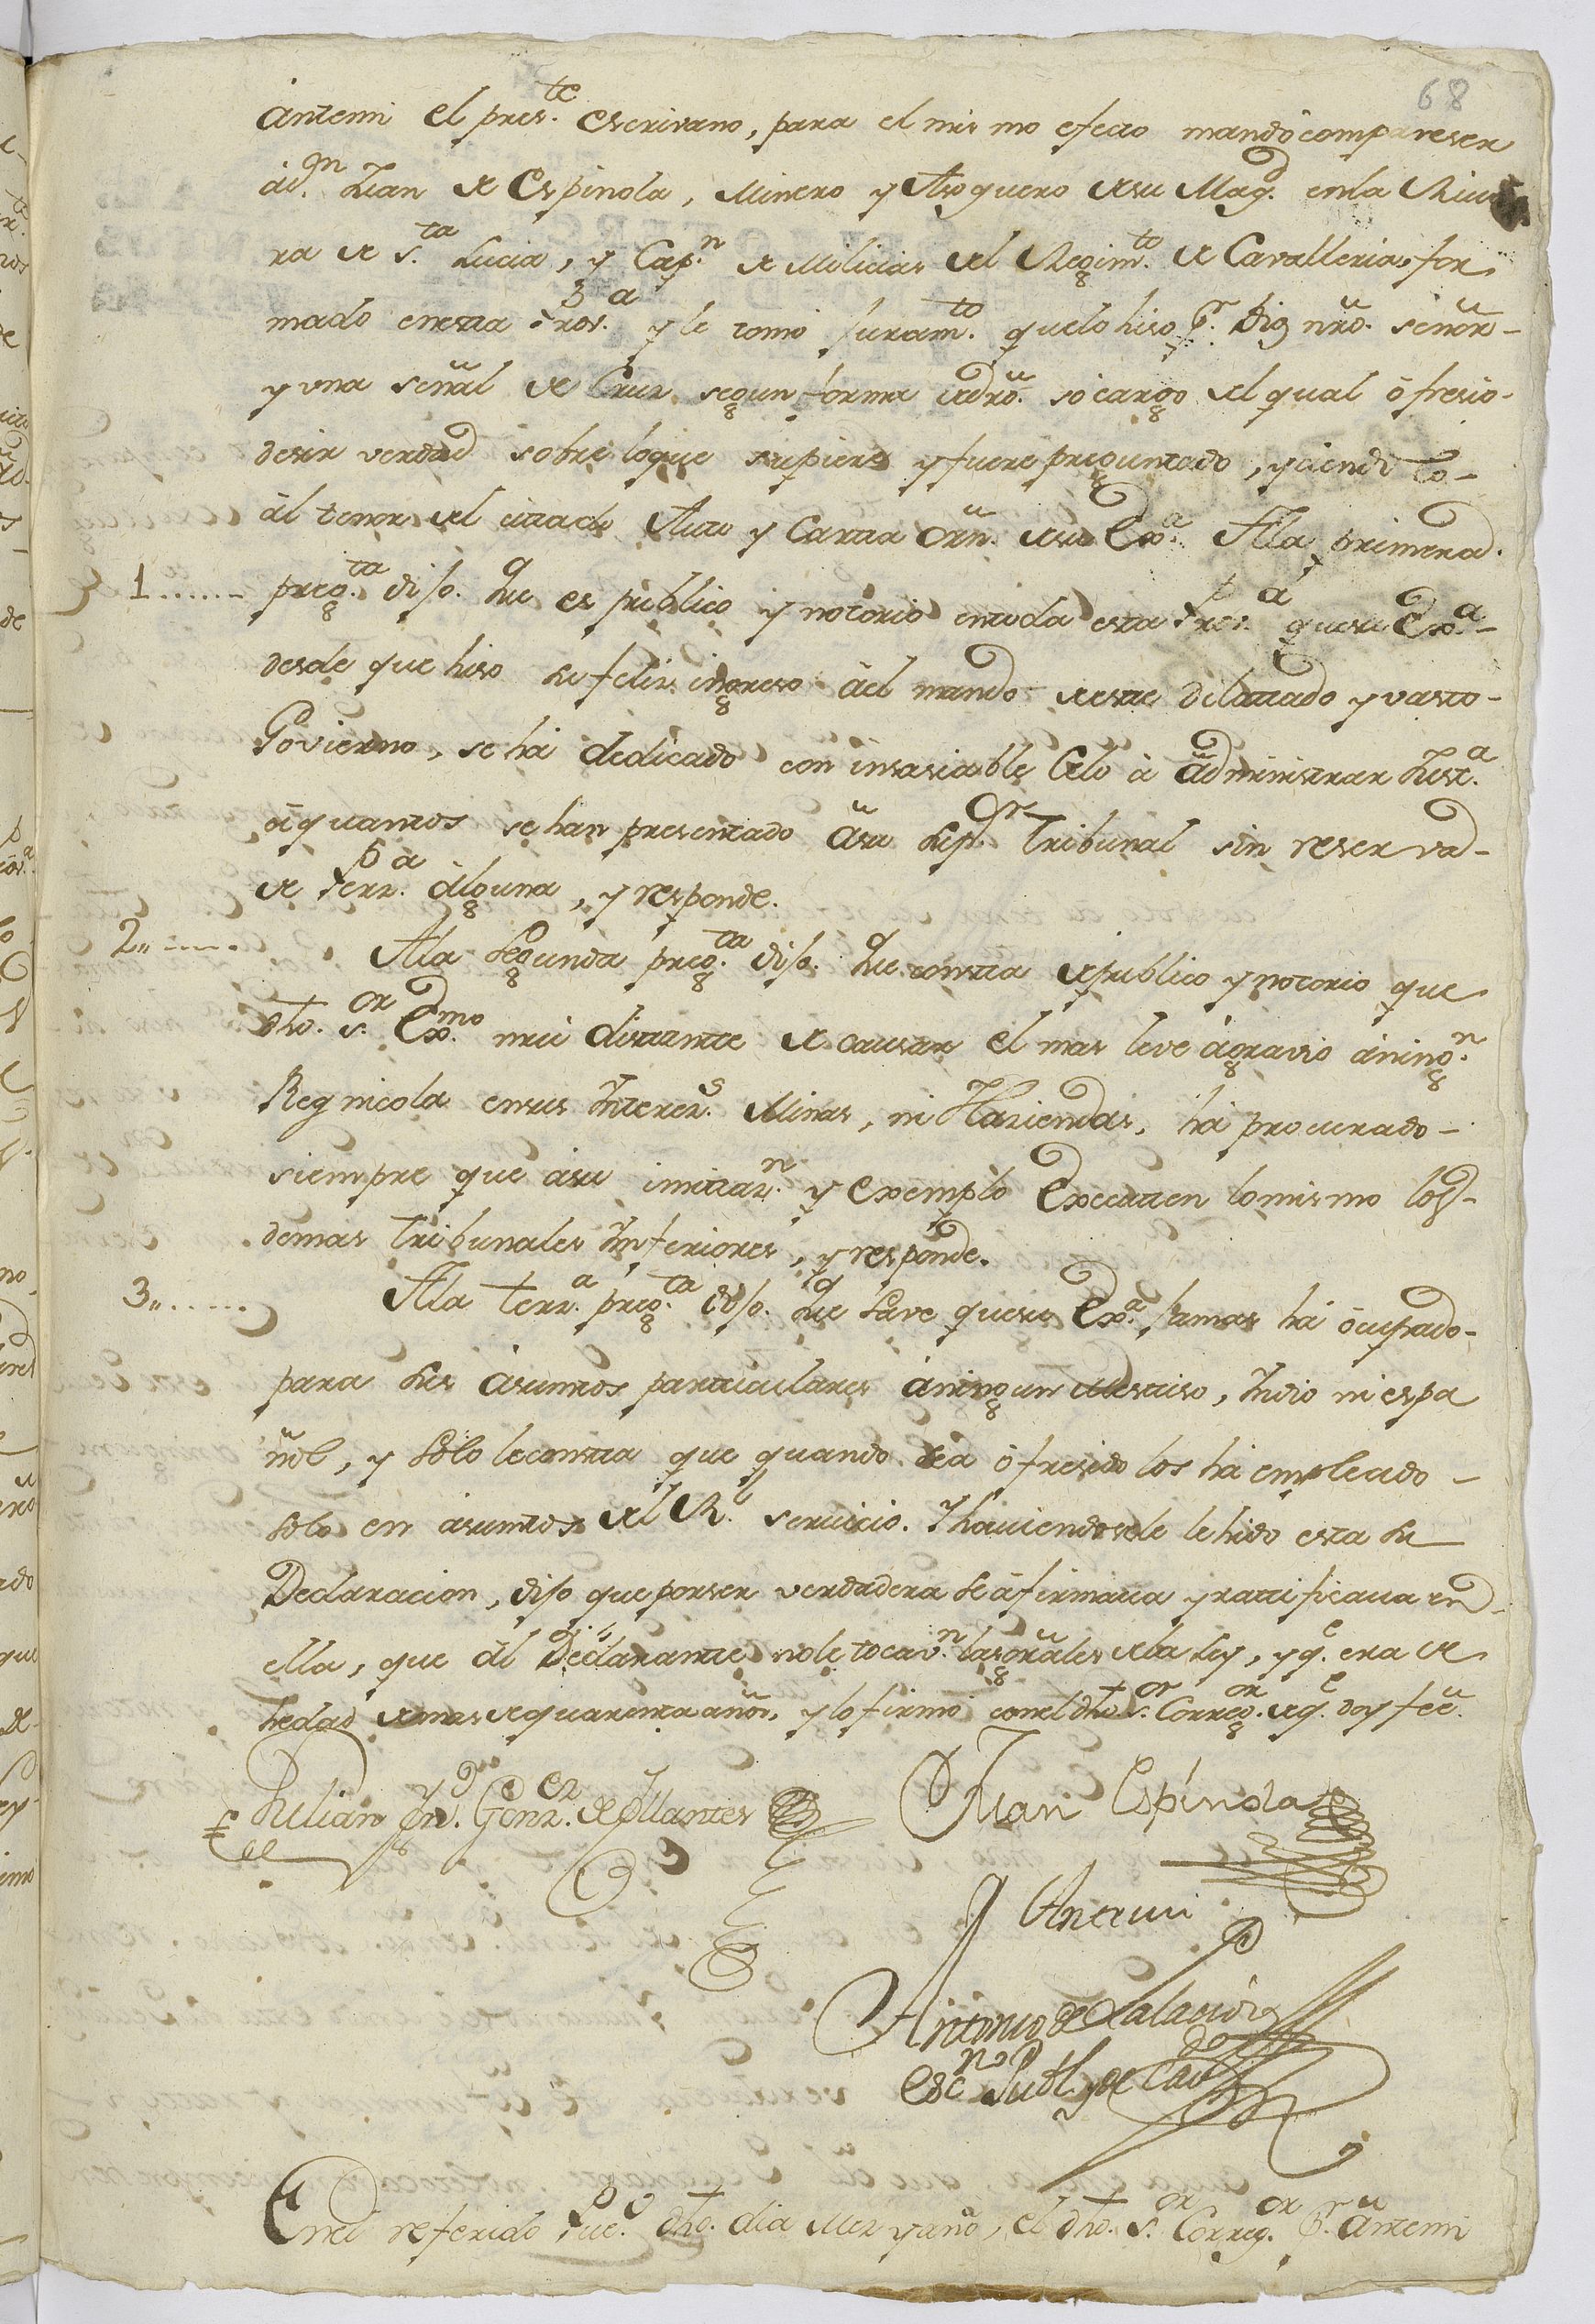 68
antemi el pres.te escrivano, para el mismo efecto mandó compareser
ád.n Juan de Espinola, Minero y Asoguero desu Mag.d enla Rive
ra de S.ta Lucia, y Cap.n de Milicias del Regim.to de Cavallerias for
mado enesta Prov.a y le tomó Juram.to quelo hiso P.r Dios nrõ. señor
y una señal de Cruz segun forma dedrõ. só cargo del qual ófresió
desir verdad sobre loque supiere y fuere preguntado, yciendo lo
ál tenor del citado Auto y Carta Orñ. desu Ex.a Ala primera
1...... preg.ta dijo. Que es publico y notorio entoda esta Prov.a quesu Ex.a
desde que hiso su felis ingreso áel mando deeste dilatado y vasto
Govierno, se há dedicado con insasiable Celo á administrar Just.a
áquantos se han presentado ásu Sup.or Tribunal sin reserva
de Perz.a álguna, y responde.
2...... Ala Segunda preg.ta dijo. Que consta depublico y notorio que
dho. S.or Ex.mo mui distante de causar el mas leve ágravio áning.n
Regnicola ensus Interes.s Minas, ni Haziendas, há procurado
siempre que ásu imitaz.n y exemplo Executen lomismo los
demas Tribunales Inferiores, y responde.
3...... Ala terz.a preg.ta dijo. Que save quesu Ex.a Jamas há ócupado
para sus ásuntos particulares áningun Mestiso, Indio ni espa
ñol, y solo leconsta que quando seá ófresido los há empleado
solo en ásuntos del R.l servicio. Y haviendosele lehido esta su
Declaracion, dijo que porser verdadera se áfirmava y ratificava en
ella, que ál Declarante nole tocav.n lasgrãles dela Ley, y q.e era de
hedad demas dequarenta años, y lo firmó conel dho S.or Correg.or deq.e doy feé.
Julian Ygn.o Gonz.ez de Pllantes Juan Espínola
Antemi
Antonio de
Esc.no Publ. y de Cav.do
Enel referido Pue.o dho. dia Mez y año, el dho. S.or Correg.or P.r antemi